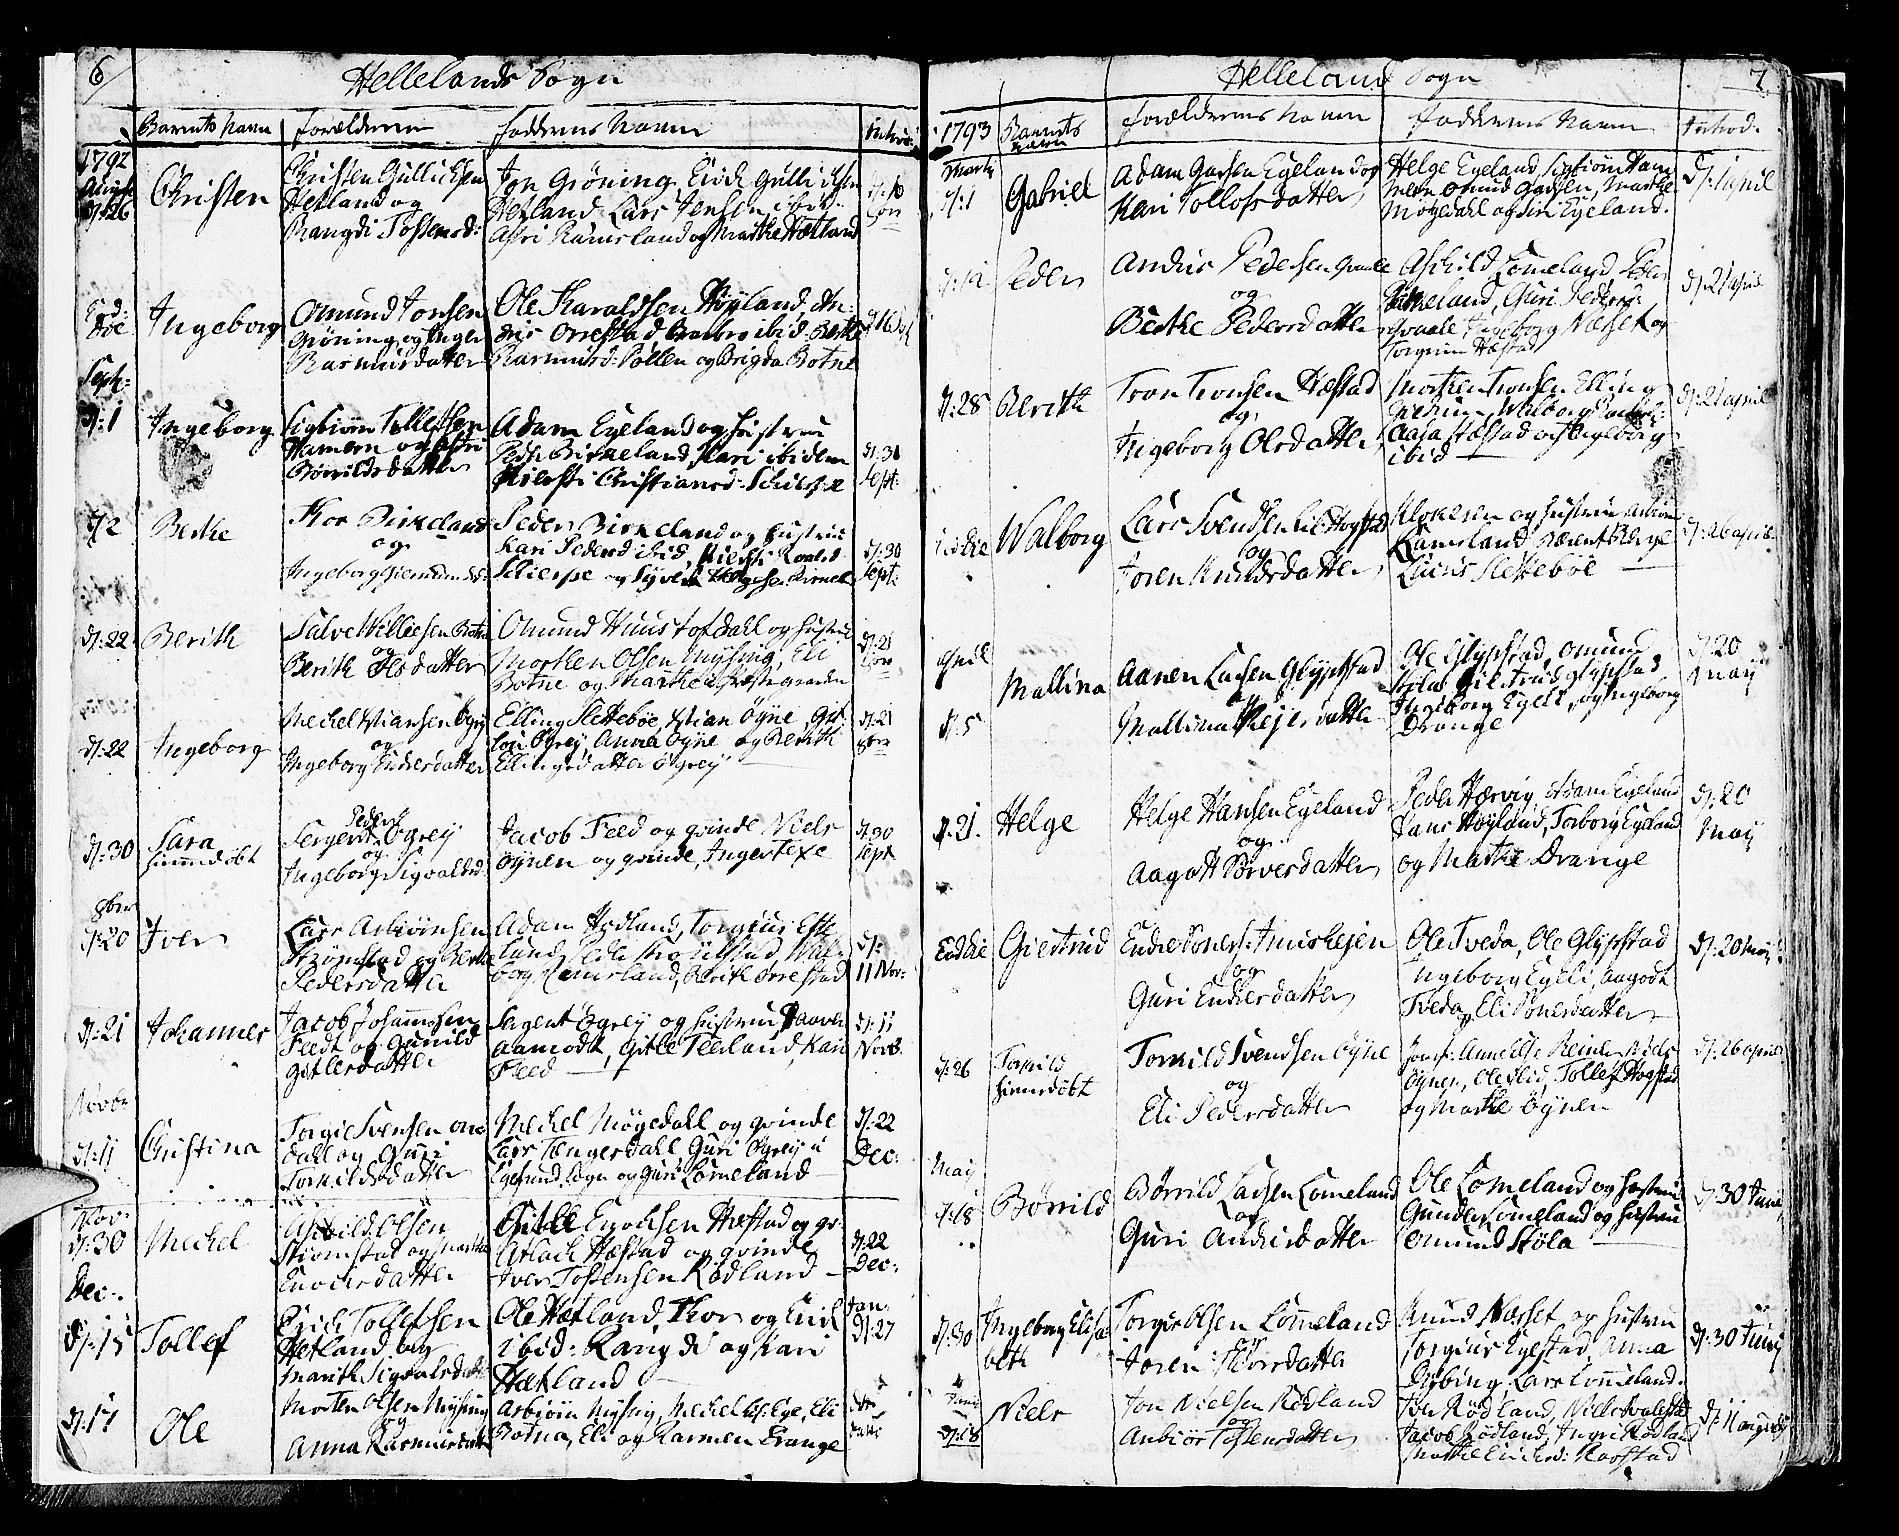 6
Hellelands Sogn
Barnets Navn
Forældrene
Faddernes Navne
Introd:
1792
August
d: 26
Christen
Christen Gullichsen
Hetland og
Rangdi Tostensd:
Jon Grøning, Erich Gullichsen
Hetland, Lars Jensen ibid:
Asri Ramsland og Marthe Hætland
Eod:
die
Ingeborg
Omund Jonsen
Grøning og Inger
Rasmusdatter
Ole Haraldsen Høyland, An-
dris Orrestad
Rasmusd: Pollen og Brigda Botne
Sept:
d: 1
Ingeborg
Sigbiørn Tollefsen
Hamern og Asri
Børrildsdatter
Adam Egeland og Hustrue
Peder Birkeland, Kari ibidem
Kiersti Christiansd: Schierpe
d: 30
Sept:
d: 2
Berthe
Thor Birkeland
og
Ingeborg
Peder Birkeland og Hustrue
Kari Pedersd ibid, Kiersti Roalsd
Schierpe og
d: 30
Sept:
d: 22
Berith
Salve Villiesen Botne
og
Berith Olsdatter
Omund Huustofdall og Hustrue
Morthen Olsen Mysing, Eli
Botne og Marthe
d: 21
d: 22
Ingeborg
Mechel Stiansen Øgrey
og
Ingeborg Endersdatter
Elling Slettebøe, Stian Øyne
Øgrey, Anna Øyne og Berith
Ellingsdatter Øgrey
d: 21
8br
d: 30
Sara
hiemedøbt
Peder
Sergent Øgrey
og
Ingeborg Sigvalsd
Jacob Feed og qvinde Niels
Øynen og qvinde, Inger Texe
d: 30
Sept
8ber
d: 20
Iver
Lars Asbiørnsen
Strømstad og Berthe
Pedersdatter
Adam Hedland, Torgiuus Efte
land, Peder Strømstad, Wal-
borg Ramsland, Berith Orrestad
d:
11 Nov:
d: 21
Johannes
Jacob Johannesen
Feedt og Gunild
Gitlesdatter
Sergent Øgrey og Hustrue, Paavel
Aamodt, Gitle Teeland, Kari
Feed
d: 11
Novb.
Novbr
d: 11
Christina
Torgie Svensen om-
dall og Guri
Torkildsdatter
Mechel Møgedall og qvinde
Lars Tengesdall Guri Øgrey i
Egesund Sogn og Guri Lomeland
d: 22
Dec:
Nov:
d: 30
Mechel
Aschild Olsen
Strømstad og Marthe
Enochsdatter
Gitle Enochsen Hæstad og qv:
Aslach Hæstad og qvinde
Iver Tostensen Rødland
d: 22
Dec:
Dec:
d: 15
Tollef
Erich Tollefsen
Hetland og
Marith Sigvalsdatter
Ole Hætland, Thor og Erich
ibid: Rangdi og Kari
Hætland
Jan:
d: 27
d: 17
Ole
Morten Olsen Mysing
og
Anna Rasmusdatter
Asbiørn Mysing, Mechel Eye, Eli
Botna, Eli og Karmen Erange
7
Helleland Sogn
1793
Barnets
Navn
Forældrenes Navne
Faddernes Navne
Introd.
Marti
d: 1
Gabriel
Adam Garsen Egeland og
Kari Tollofsdatter
Helge Egeland, Sigbiørn Ham
mern Omund Garsen, Marthe
Møgedahl og Siri Egeland.
d: 1 april
Peder
Andris Pedersen Qvaale
og
Berthe Pedersdatter
Aschild Lomeland, Peder
Birkeland, Guri Pedersd:
Qvaale Ingeborg Næset og
Torgrim Hæstad
d: 21 april
d: 28
Berith
Tron Tronsen Hæstad
og
Ingeborg Olsdatter
Morthen Tronsen, Elling
Aasa Hæstad og Ingeborg
ibid
d: 21 april
Eod die
Walborg
Lars Svendsen Lie Hogstad
og
Joren Knudsdatter
Klokeren og Hustrue
Ramsland, Berent Berge
Lucius Slettebøe
d: 26 april
April
d: 5
Mallina
Aanen Larsen Glypstad
og
Mallina Reiersdatter
Ole Glypstad, Omund
Støle Giertrud Glypstad
Ingeborg Egelie, og Ingeborg
Drange
d: 20
May
d: 21.
Helge
Helge Hansen Egeland
og
Aagott Siversdatter
Peder Hærvig, Adam Egeland
Hans Høyland, Torborg Egeland
og Marthe Drange
d: 20
May
Eod die
Giertrud
Endre Tonersen
og
Guri Endresdatter
Ole Tveda, Ole Glypstad
Ingeborg Egeli, Aagodt
Tveda, Eli Tonersdatter
d: 20 May
d: 26
Torkild
hiemedøbt
Torkild Svendsen Øyne
og
Eli Pedersdatter
Jomf: Anne Else Reiner, Niels
Øynen, Ole Slid, Tollef Hogstad
og Marthe Øynen
d: 26 april
May
d: 18
Børrild
Børrild Larsen Lomeland
og
Guri Andersdatter
Ole Lomeland og Hustrue
Gunder Lomeland og Hustrue
Omund Støla
d: 30 Juni
d: 30
Ingeborg Elisa-
beth
Torger Olsen Lommeland
og
Joren Thorsdatter
Knud Næsset og Hustrue
Torgiuus Egestad, Anna
Dybing, Lars Lommeland.
d: 30 Juny
Juni
d: 18
Niels
Jon Nielsen Rødland
og
Anbior Tostensdatter
Jon Rødland, Niels Svalestad
Jacob Rødland, Ingri Rødland
Marthe Erichsd: Rosstad
d: 11 august